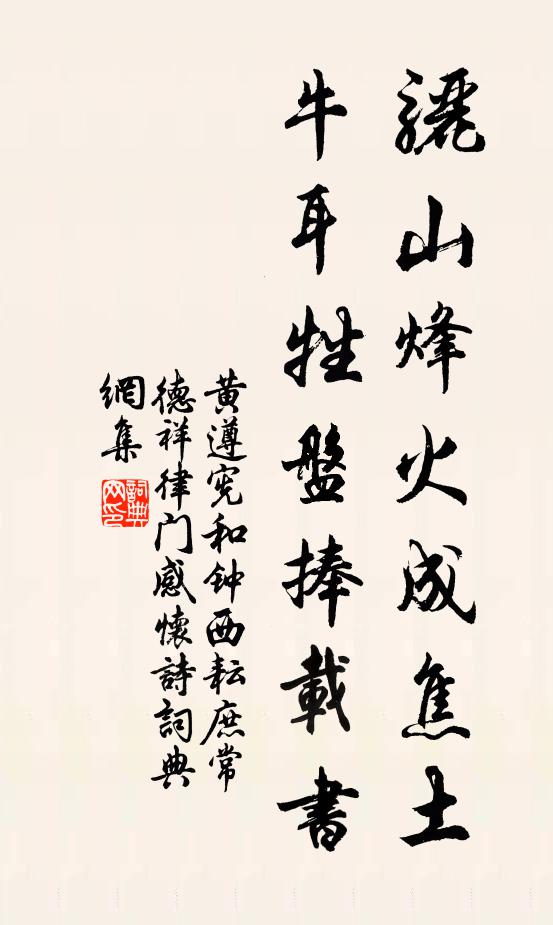 驪山烽火成焦土
牛耳牲盤捧載書
黄遵宪和钟西耘庶常
德祥律门感懷詩詞典
網集
詞典
网印